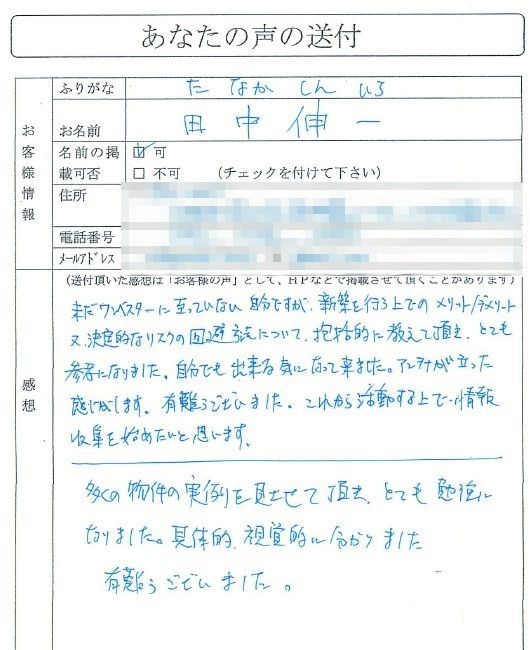 あなたの声の送付
お客様情報
ふりがな たなか しんいち
お名前 田中 伸一
名前の掲載可否 ☑ 可
□ 不可 (チェックを付けて下さい)
住所
電話番号
メールアドレス
感想
(送付頂いた感想は「お客様の声」として、HPなどで掲載させて頂くことがあります)
まだ インベスターに至っていない 自分ですが、新築を行う上での メリット/デメリット
又、決定的なリスクの回避方法について、抱括的に教えて頂き、とても
参考になりました。自分でも出来る気になって来ました。アンテナが立った
感じがします。有難うございました。これから活動する上で、情報
収集を始めたいと思います。
多くの物件の実例を見させて頂き、とても勉強に
なりました。具体的、視覚的に分かりました
有難うございました。